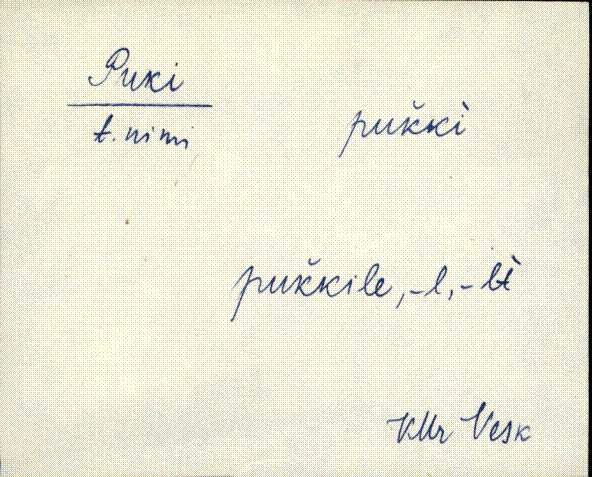 Puki
t. nimi
puk̆kì
puk̆kile, -l, -lt̀
KMr Vesk